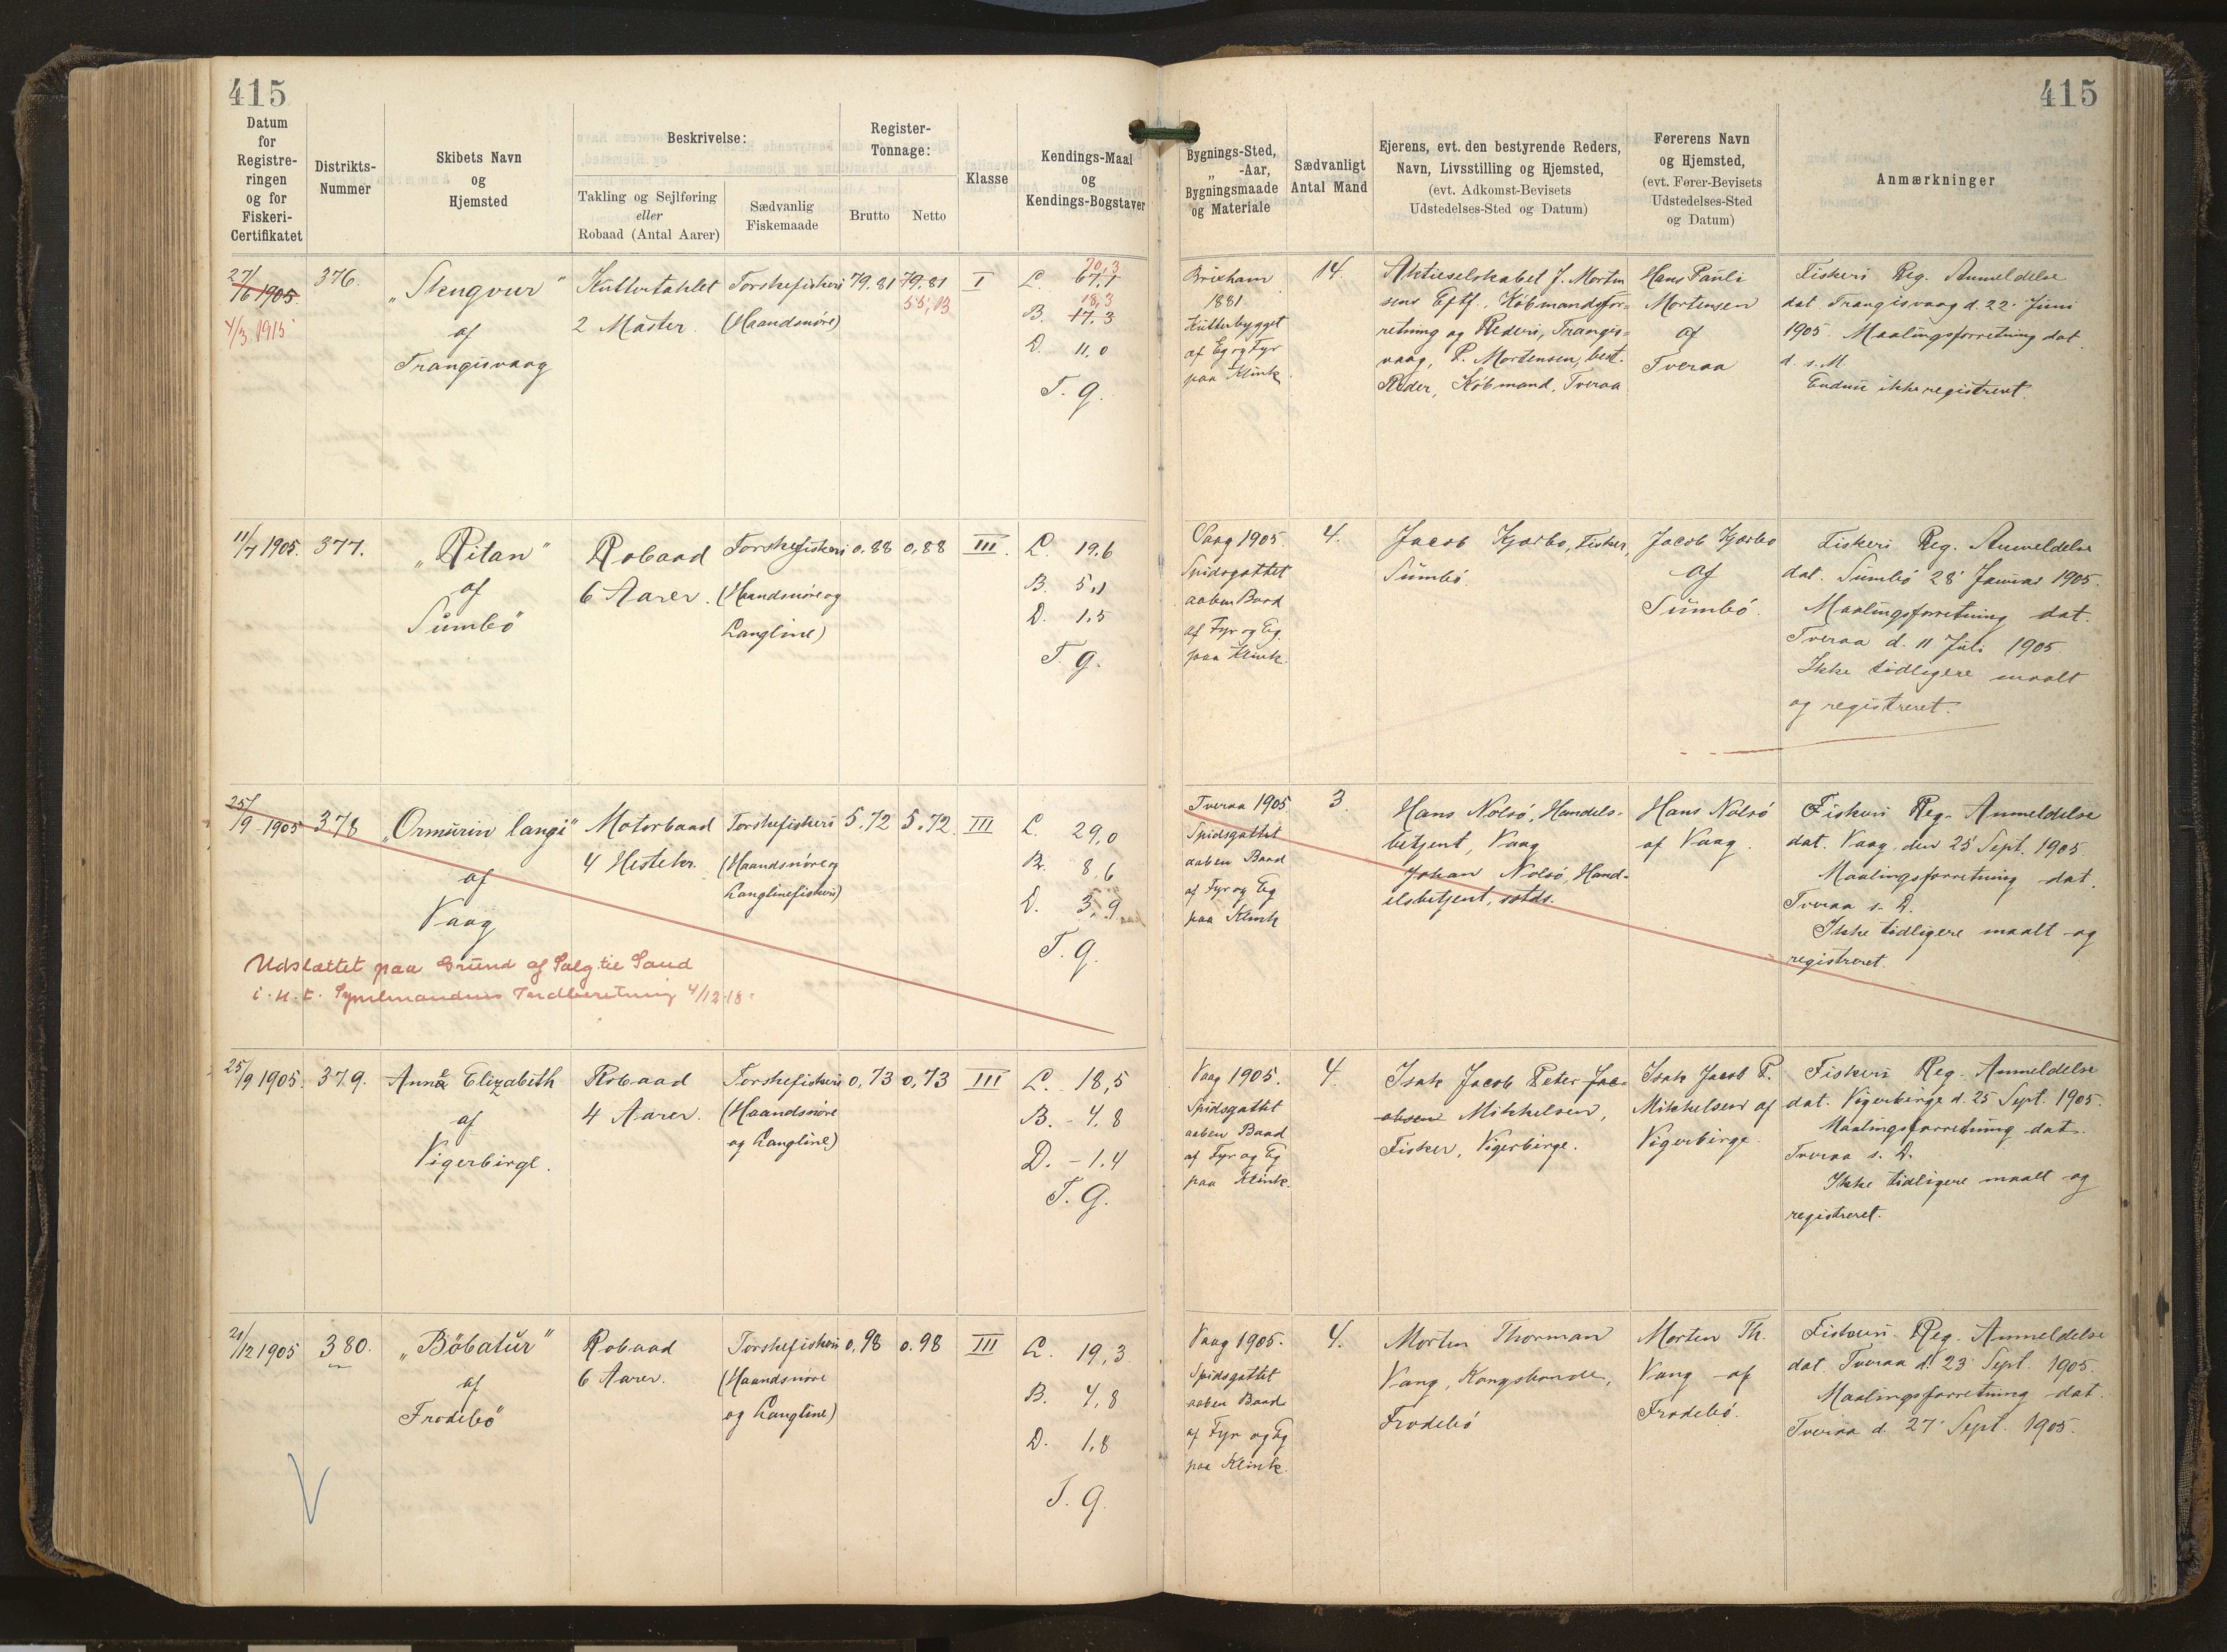 415
415
Datum
for
Registre-
ringen
og for
Fiskeri-
Certifikatet
Distrikts-
Nummer
Skibets Navn
og
Hjemsted
Beskrivelse:
Takling og Sejlføring
eller
Robaad (Antal Aarer)
Sædvanlig
Fiskemaade
Register-
Tonnage:
Brutto
Netto
Klasse
Kendings-Maal
og
Kendings-Bogstaver
Bygnings-Sted,
„ -Aar,
Bygningsmaade
og Materiale
Sædvanligt
Antal Mand
Ejerens, evt. den bestyrende Reders,
Navn, Livsstilling og Hjemsted,
(evt. Adkomst-Bevisets
Udstedelses-Sted og Datum)
Førerens Navn
og Hjemsted,
(evt. Fører-Bevisets
Udstedelses-Sted
og Datum)
Anmærkninger
27/6 1905.
4/3 1915
376.
„Skugvur"
af
Trangisvaag
Kuttertaklet
2 Master
Torskefiskeri
(Haandsnøre)
79.81
79.81
55,13
I
70,3
L. 67,1
18,3
B. 17,3
D. 11,0
T. g.
Brixham
1881.
Kutterbygget
af Eg og Fyr
paa Klink.
14.
Aktieselskabet J. Morten
sens Eftf., Købmandsfor-
retning og Rederi, Trangis-
vaag, P. Mortensen, best.
Reder, Købmand, Tveraa
Hans Pauli
Mortensen
af
Tveraa
Fiskeri Reg. Anmeldelse
dat Trangisvaag d. 22. Juni
1905. Maalingsforretning dat.
d. s. M.
Endnu ikke registreret.
11/7 1905.
377.
„Ritan"
af
Sumbö
Robaad
6 Aarer.
Torskefiskeri
(Haandsnøre og
Langline)
0.88
0,88
III.
L. 19,6
B. 5,1
D. 1,5
T. g.
Vaag 1905.
Spidsgattet
aaben Baad
af Fyr og Eg.
paa Klink.
4.
Jacob Kjærbo, Fisker,
Sumbö.
Jacob Kjærbo
af
Sumbö.
Fiskeri Reg. Anmeldelse
dat. Sumbö 28' Januar 1905.
Maalingsforretning dat.
Tveraa d. 11 Juli 1905.
Ikke tidligere maalt
og registreret.
25/9 1905
378
„Ormurin langi"
af
Vaag
Motorbaad
4 Hestekr.
Torskefiskeri
(Haandsnøre og
Langlinefiskeri)
5.72
5.72.
III
L. 29,0
B. 8,6
D. 3,9
T. g.
Udslettet paa Grund af Salg til Sand
i. H. t. Sysselmandens Indberetning 4/12-18.
Tveraa 1905
Spidsgattet
aaben Baad
af Fyr og Eg
paa Klink
3.
Hans Nolsö, Handels-
betjent, Vaag
Johan Nolsö, Hand-
elsbetjent, sstds.
Hans Nolsö
af Vaag.
Fiskeri Reg. Anmeldelse
dat. Vaag, den 25' Sept. 1905.
Maalingsforretning dat.
Tveraa s. D.
Ikke tidligere maalt og
registreret.
25/9 1905.
379.
Anna Elizabeth
af
Vigerbirge.
Robaad
4 Aarer.
Torskefiskeri
(Haandsnøre
og Langline)
0,73
0,73
III
L. 18,5
B. - 4,8
D. - 1,4
T. g.
Vaag 1905.
Spidsgattet
aaben Baad
af Fyr og Eg
paa Klink.
4.
Isak Jacob Peter Jac-
obsen Mikkelsen,
Fisker, Vigerbirge.
Isak Jacob P.
Mikkelsen af
Vigerbirge
Fiskeri Reg. Anmeldelse
dat. Vigerbirge d. 25 Sept. 1905
Maalingsforretning dat.
Tveraa s. D.
Ikke tidligere maalt og
registreret.
21/12 1905
380.
„Böbatur"
af
Frodebö
Robaad
6 Aarer.
Torskefiskeri
(Haandsnøre
og Langline)
0,98
0.98
III
L. 19,3
B. 4,8
D. 1,8
T. g.
Vaag 1905.
Spidsgattet
aaben Baad
af Fyr og Eg
paa Klink.
4.
Morten Thorman
Vang, Kongsbonde,
Frodebö
Morten Th.
Vang af
Frodebö.
Fiskeri. Reg. Anmeldelse
dat. Tveraa d. 23' Sept. 1905.
Maalingsforretning dat.
Tveraa d. 27' Sept. 1905.